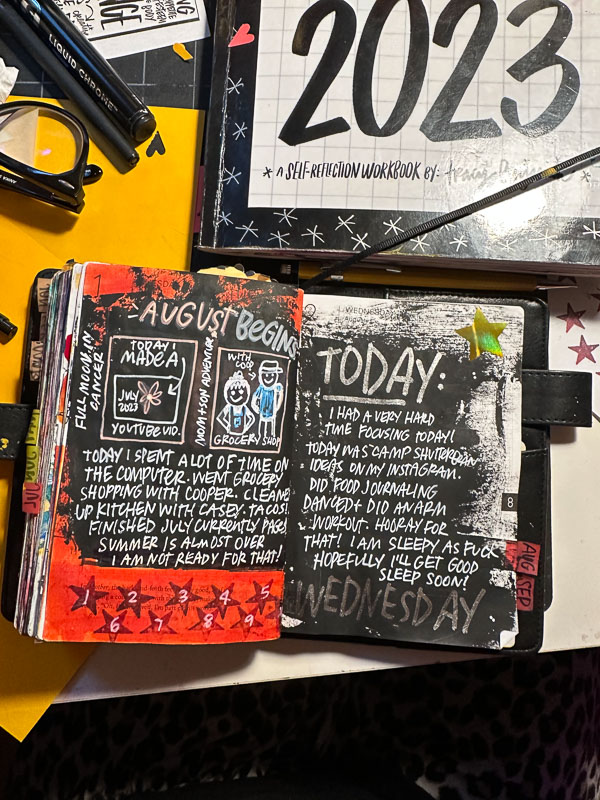 LIQUID CHROME
2023
A SELF-REFLECTION WORKBOOK BY:
1
AUGUST BEGINS
FULL MOON IN CANCER
TODAY I MADE A
JULY 2023
YOUTUBE VID.
MOM + SON ADVENTURE
WITH COOP
GROCERY SHOP
TODAY I SPENT A LOT OF TIME ON
THE COMPUTER. WENT GROCERY
SHOPPING WITH COOPER. CLEANED
UP KITCHEN WITH CASEY. TACOS!
FINISHED JULY CURRENTLY PAGE!
SUMMER IS ALMOST OVER
I AM NOT READY FOR THAT!
1 2 3 4 5
6 7 8 9
WEDNESDAY
TODAY:
I HAD A VERY HARD
TIME FOCUSING TODAY!
TODAY WAS CAMP SHUTTERDAWN
IDEAS ON MY INSTAGRAM.
DID FOOD JOURNALING
DANCED + DID AN ARM
WORKOUT. HOORAY FOR
THAT! I AM SLEEPY AS FUCK
HOPEFULLY I'LL GET GOOD
SLEEP SOON!
WEDNESDAY
8
AUG
SEP